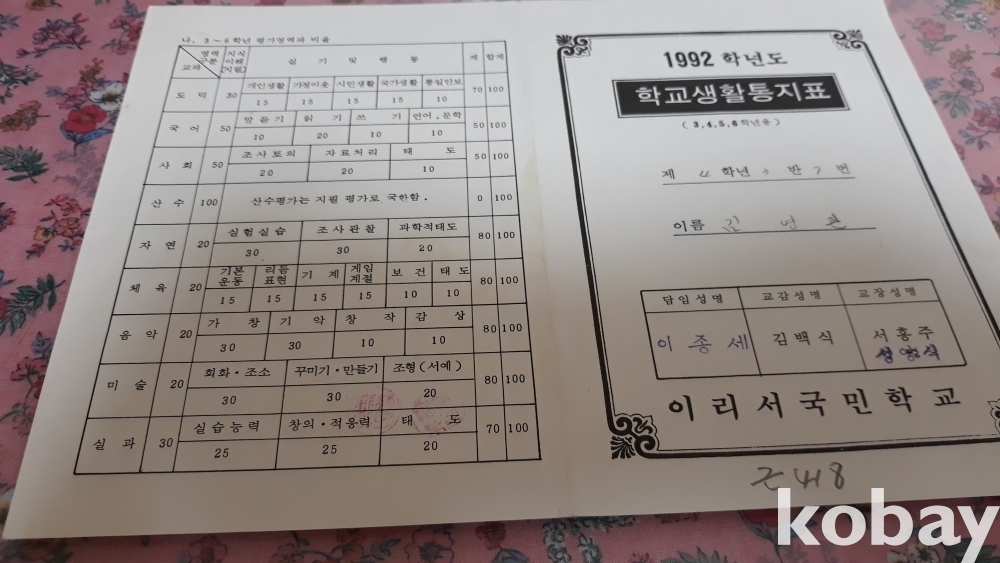 나. 3~6학년 평가영역과 비율
영역 구분 교과 지식이해 지필 실기 및 행동 계 합계
도덕 30 개인생활 가정이웃 시민생활 국가생활 통일안보 70 100
15 15 15 15 10
국어 50 말듣기 읽기 쓰기 언어,문학 50 100
10 20 10 10
사회 50 조사토의 자료처리 태도 50 100
20 20 10
산수 100 산수평가는 지필 평가로 국한함. 0 100
자연 20 실험실습 조사관찰 과학적태도 80 100
30 30 20
체육 20 기본운동 리듬표현 기계 게임계절 보건 태도 80 100
15 15 15 15 10 10
음악 20 가창 기악 창작 감상 80 100
30 30 10 10
미술 20 회화·조소 꾸미기·만들기 조형(서예) 80 100
30 30 20
실과 30 실습능력 창의·적응력 태도 70 100
25 25 20
1992 학년도
학교생활통지표
(3,4,5,6학년용)
제 4 학년 3 반 7 번
이름 김영관
담임성명 교감성명 교장성명
이종세 김백식 서홍주
이리서국민학교
418
kobay